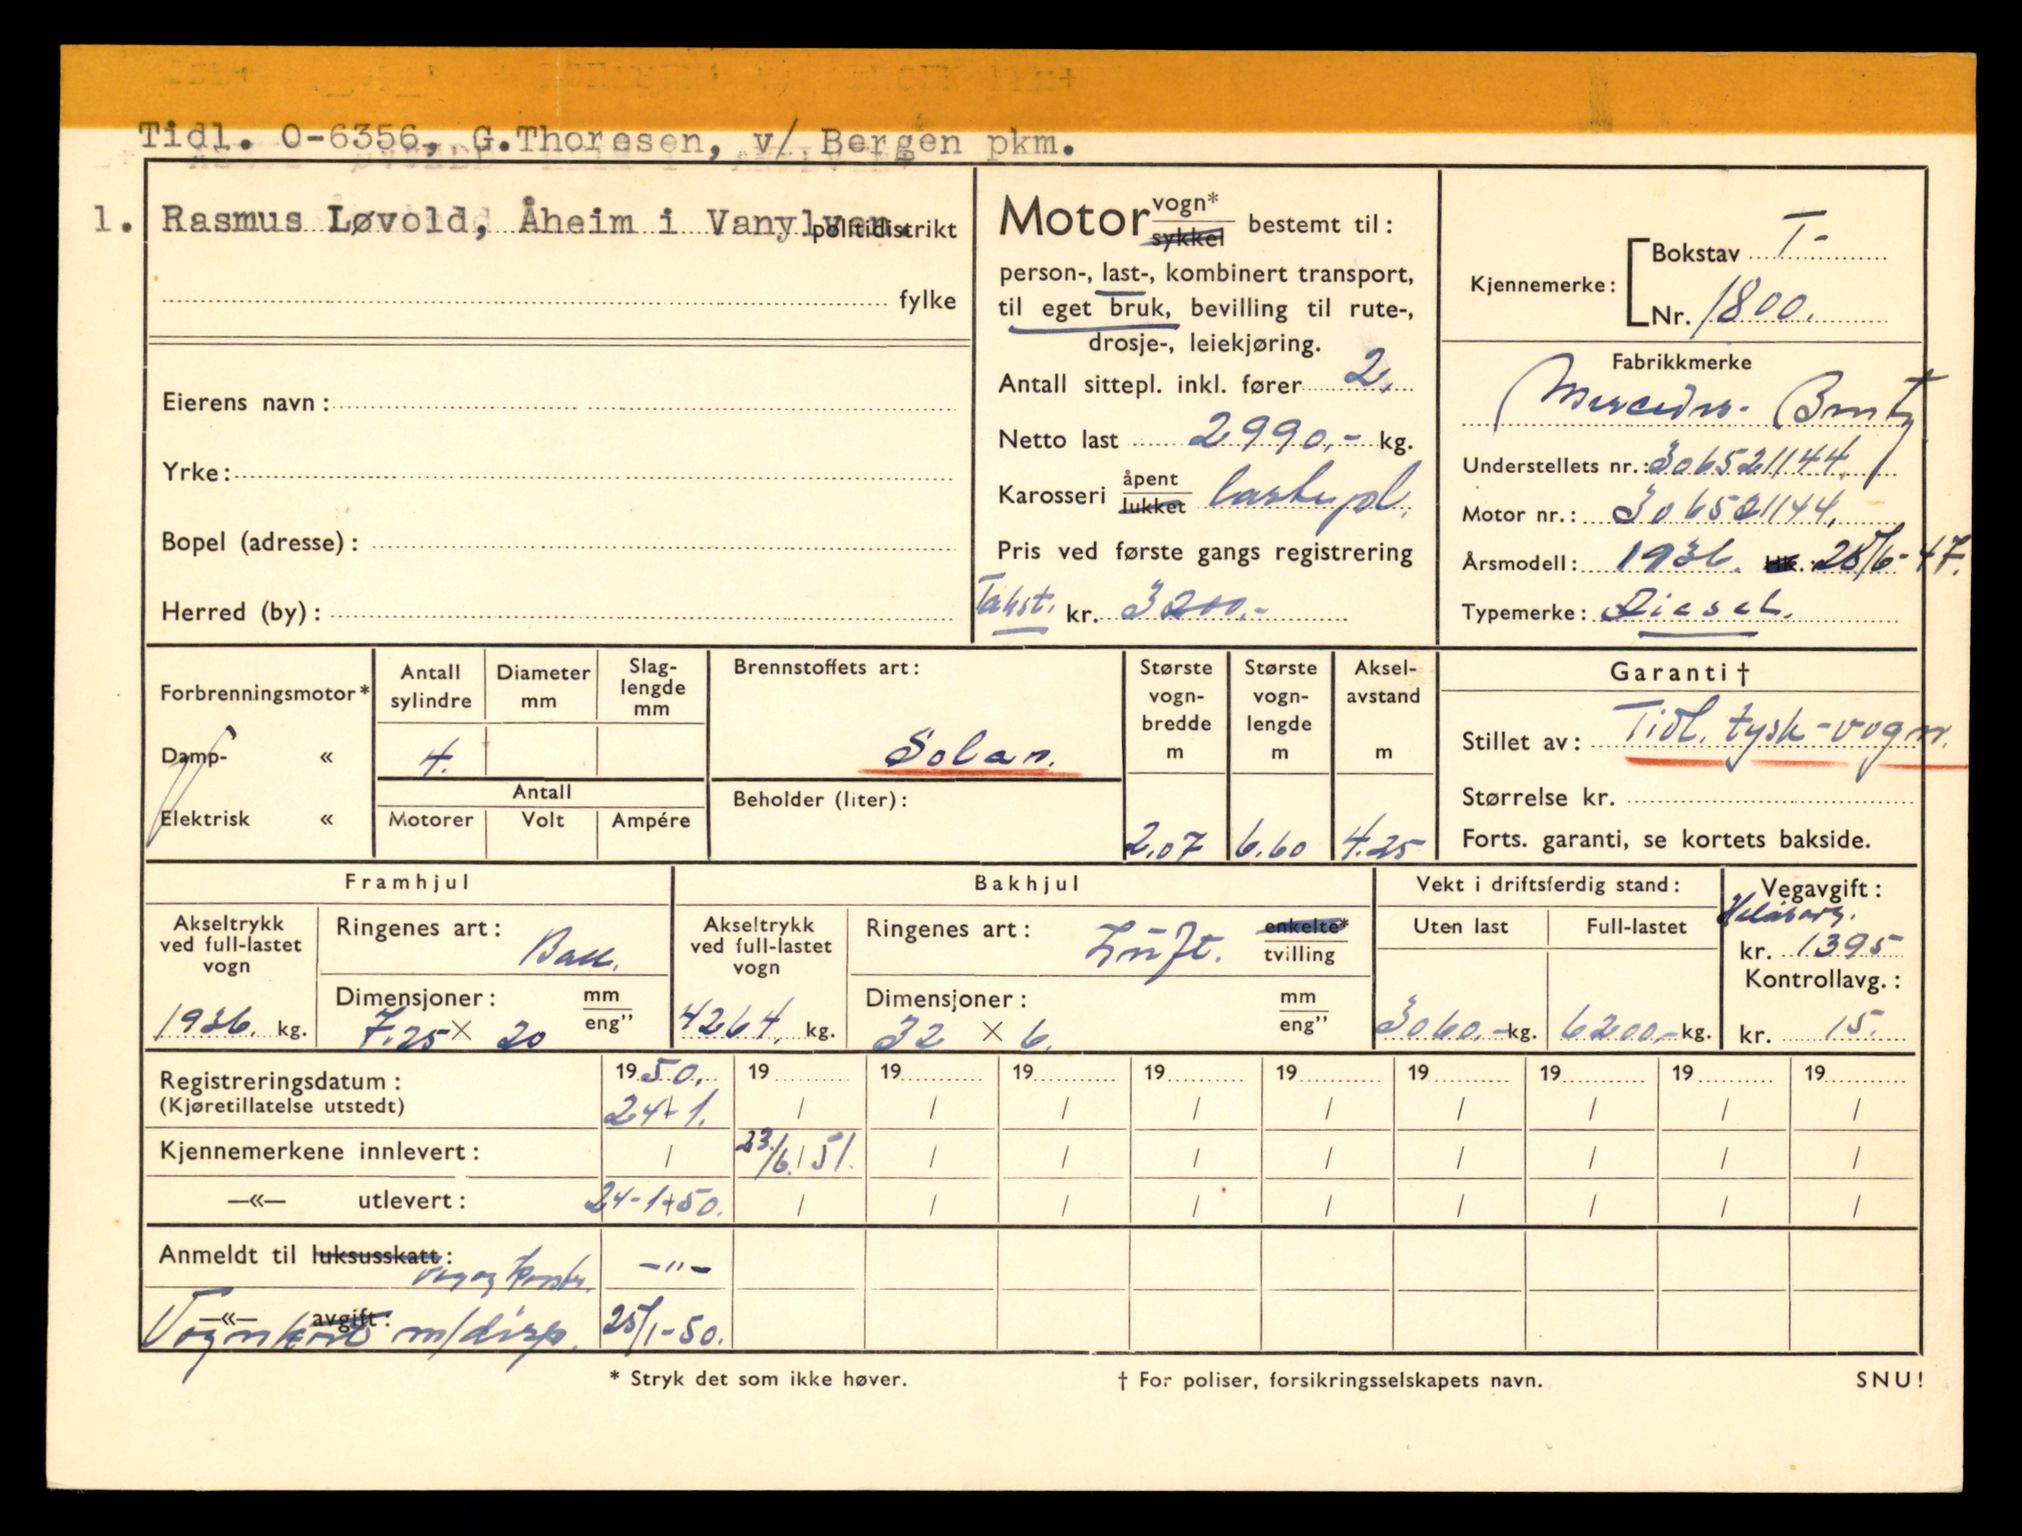 Tidl. O-6356, G.Thoresen, v/ Bergen pkm.
1. Rasmus Løvold, Åheim i Vanylven. politidistrikt
fylke
Eierens navn:
Yrke:
Bopel (adresse):
Herred (by):
Motor vogn* sykkel bestemt til:
person-, last-, kombinert transport,
til eget bruk, bevilling til rute-,
drosje-, leiekjøring.
Antall sittepl. inkl. fører 2.
Netto last 2990,- kg.
Karosseri åpent lukket lastepl.
Pris ved første gangs registrering
Takst. kr. 3200.-
Kjennemerke: Bokstav T-
Nr. 1800.
Fabrikkmerke
Mercedes-Bentz
Understellets nr.: 306521144.
Motor nr.: 306521144.
Årsmodell: 1936. HK. 25/6-47.
Typemerke: Diesel.
Forbrenningsmotor*
Damp- «
Elektrisk «
Antall sylindre
4.
Diameter mm
Slag-lengde mm
Antall
Motorer Volt Ampére
Brennstoffets art:
Solar.
Beholder (liter):
Største vogn-bredde m
2.07
Største vogn-lengde m
6.60
Aksel-avstand m
4.25
Garanti †
Stillet av: Tidl. tysk-vogn.
Størrelse kr.
Forts. garanti, se kortets bakside.
Framhjul
Akseltrykk ved full-lastet vogn
1936. kg.
Ringenes art: Ball.
Dimensjoner: mm eng”
7.25 × 20
Bakhjul
Akseltrykk ved full-lastet vogn
4264. kg.
Ringenes art: Luft. enkelte* tvilling
Dimensjoner: mm eng”
32 × 6.
Vekt i driftsferdig stand:
Uten last Full-lastet
3060.- kg. 6200,- kg.
Vegavgift:
kr. 1395
Kontrollavg.:
kr. 15.
Registreringsdatum: 1950. 19 19 19 19 19 19 19 19 19
(Kjøretillatelse utstedt) 24-1. / / / / / / / / /
Kjennemerkene innlevert: / 23./6. 51. / / / / / / / /
—«— utlevert: 24-1-50. / / / / / / / / /
Anmeldt til luksusskatt: -"-
—«— avgift:
Vognkort m/disp. 25/1-50.
* Stryk det som ikke høver.
† For poliser, forsikringsselskapets navn.
SNU!